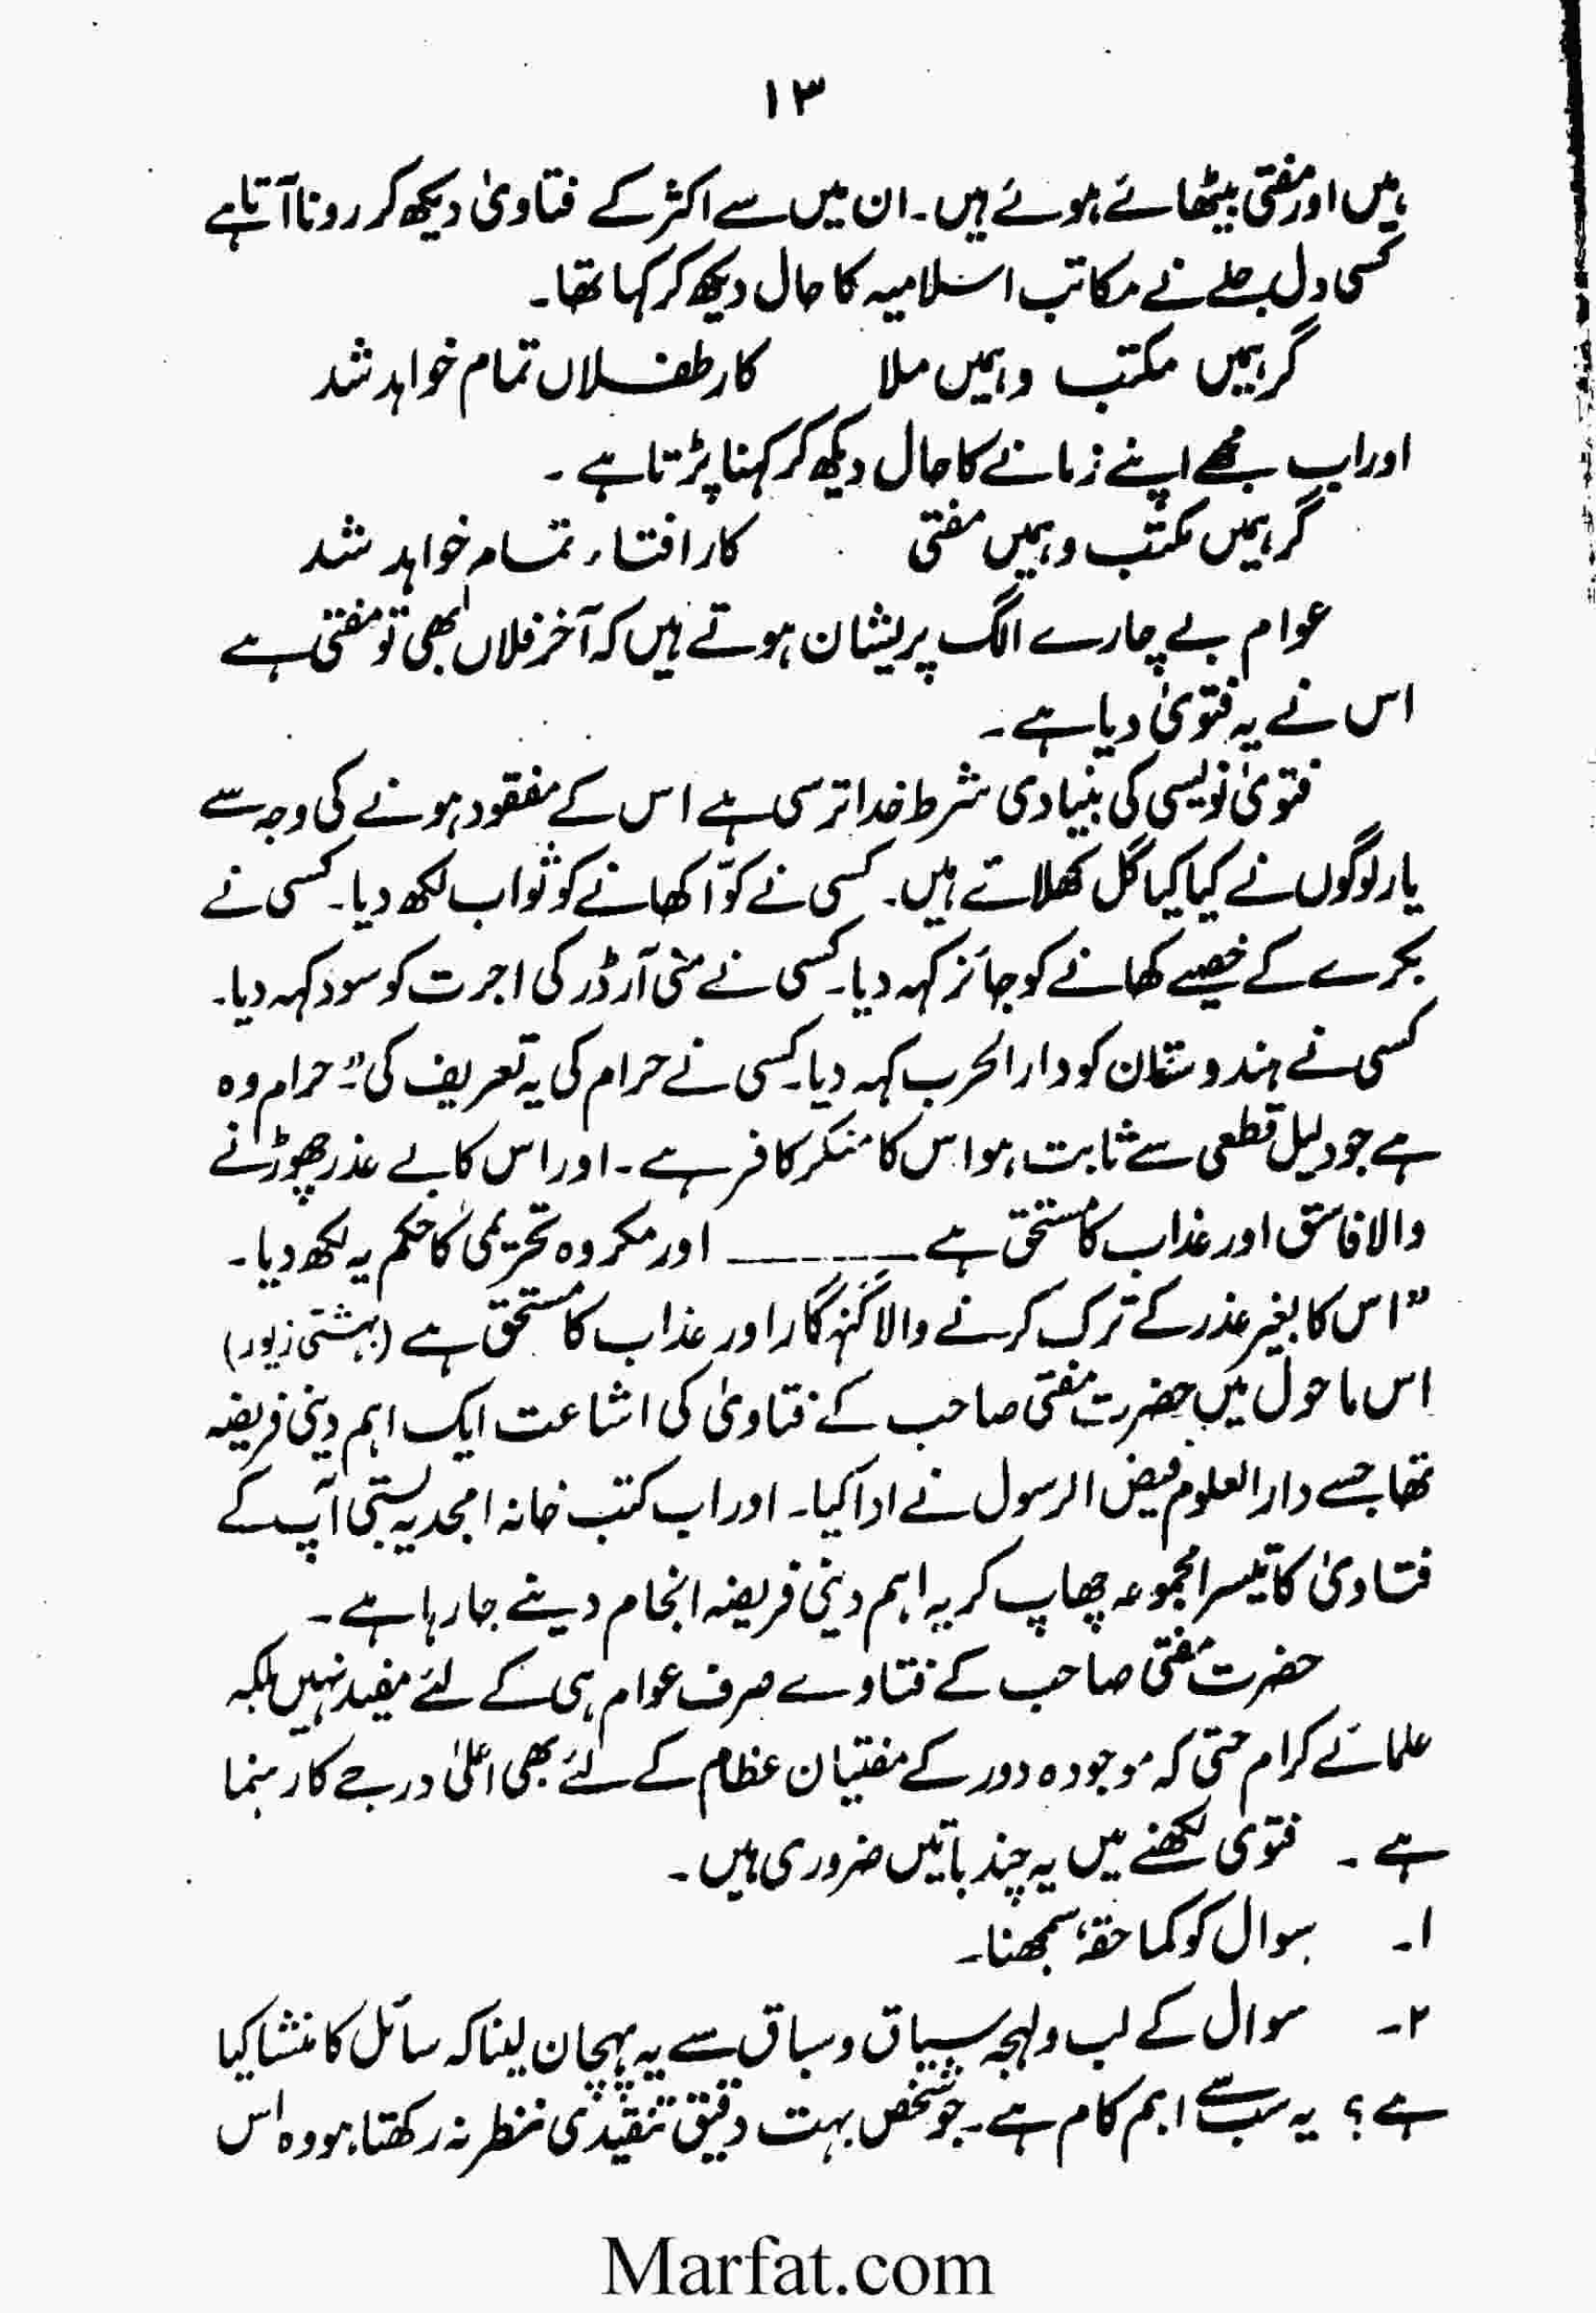 ۱۳
ہیں اور مفتی بیٹھائے ہوئے ہیں۔ ان میں سے اکثر کے فتاویٰ دیکھ کر رونا آتا ہے
کسی دل جلے نے مکاتب اسلامیہ کا حال دیکھ کر کہا تھا۔
گر ہمیں مکتب و ہمیں ملا کار طفلاں تمام خواہد شد
اور اب مجھے اپنے زمانے کا حال دیکھ کر کہنا پڑتا ہے ۔
گر ہمیں مکتب و ہمیں مفتی کار افتاء تمام خواہد شد
عوام بے چارے الگ پریشان ہوتے ہیں کہ آخر فلاں بھی تو مفتی ہے
اس نے یہ فتویٰ دیا ہے ۔
فتویٰ نویسی کی بنیادی شرط خدا ترسی ہے اس کے مفقود ہونے کی وجہ سے
یار لوگوں نے کیا کیا گل کھلائے ہیں۔ کسی نے کوّا کھانے کو ثواب لکھ دیا۔ کسی نے
بکرے کے خصیے کھانے کو جائز کہہ دیا۔ کسی نے منی آرڈر کی اجرت کو سود کہہ دیا۔
کسی نے ہندوستان کو دار الحرب کہہ دیا۔ کسی نے حرام کی یہ تعریف کی۔ ” حرام وہ
ہے جو دلیل قطعی سے ثابت ہو اس کا منکر کافر ہے ۔ اور اس کا بے عذر چھوڑنے
والا فاسق اور عذاب کا مستحق ہے ــــــــــ اور مکروہ تحریمی کا حکم یہ لکھ دیا۔
” اس کا بغیر عذر کے ترک کرنے والا گنہگار اور عذاب کا مستحق ہے (بہشتی زیور)
اس ماحول میں حضرت مفتی صاحب کے فتاویٰ کی اشاعت ایک اہم دینی فریضہ
تھا جسے دار العلوم فیض الرسول نے ادا کیا۔ اور اب کتب خانہ امجدیہ بستی آپ کے
فتاویٰ کا تیسرا مجموعہ چھاپ کر یہ اہم دینی فریضہ انجام دینے جا رہا ہے ۔
حضرت مفتی صاحب کے فتاوے صرف عوام ہی کے لئے مفید نہیں بلکہ
علمائے کرام حتی کہ موجودہ دور کے مفتیان عظام کے لئے بھی اعلیٰ درجے کا رہنما
ہے ۔ فتوی لکھنے میں یہ چند باتیں ضروری ہیں ۔
۱۔ سوال کو کما حقہٗ سمجھنا۔
۲۔ سوال کے لب و لہجہ سیاق و سباق سے یہ پہچان لینا کہ سائل کا منشا کیا
ہے ؟ یہ سب سے اہم کام ہے ۔ جو شخص بہت دقیق تنقیدی نظر نہ رکھتا ہو وہ اس
Marfat.com